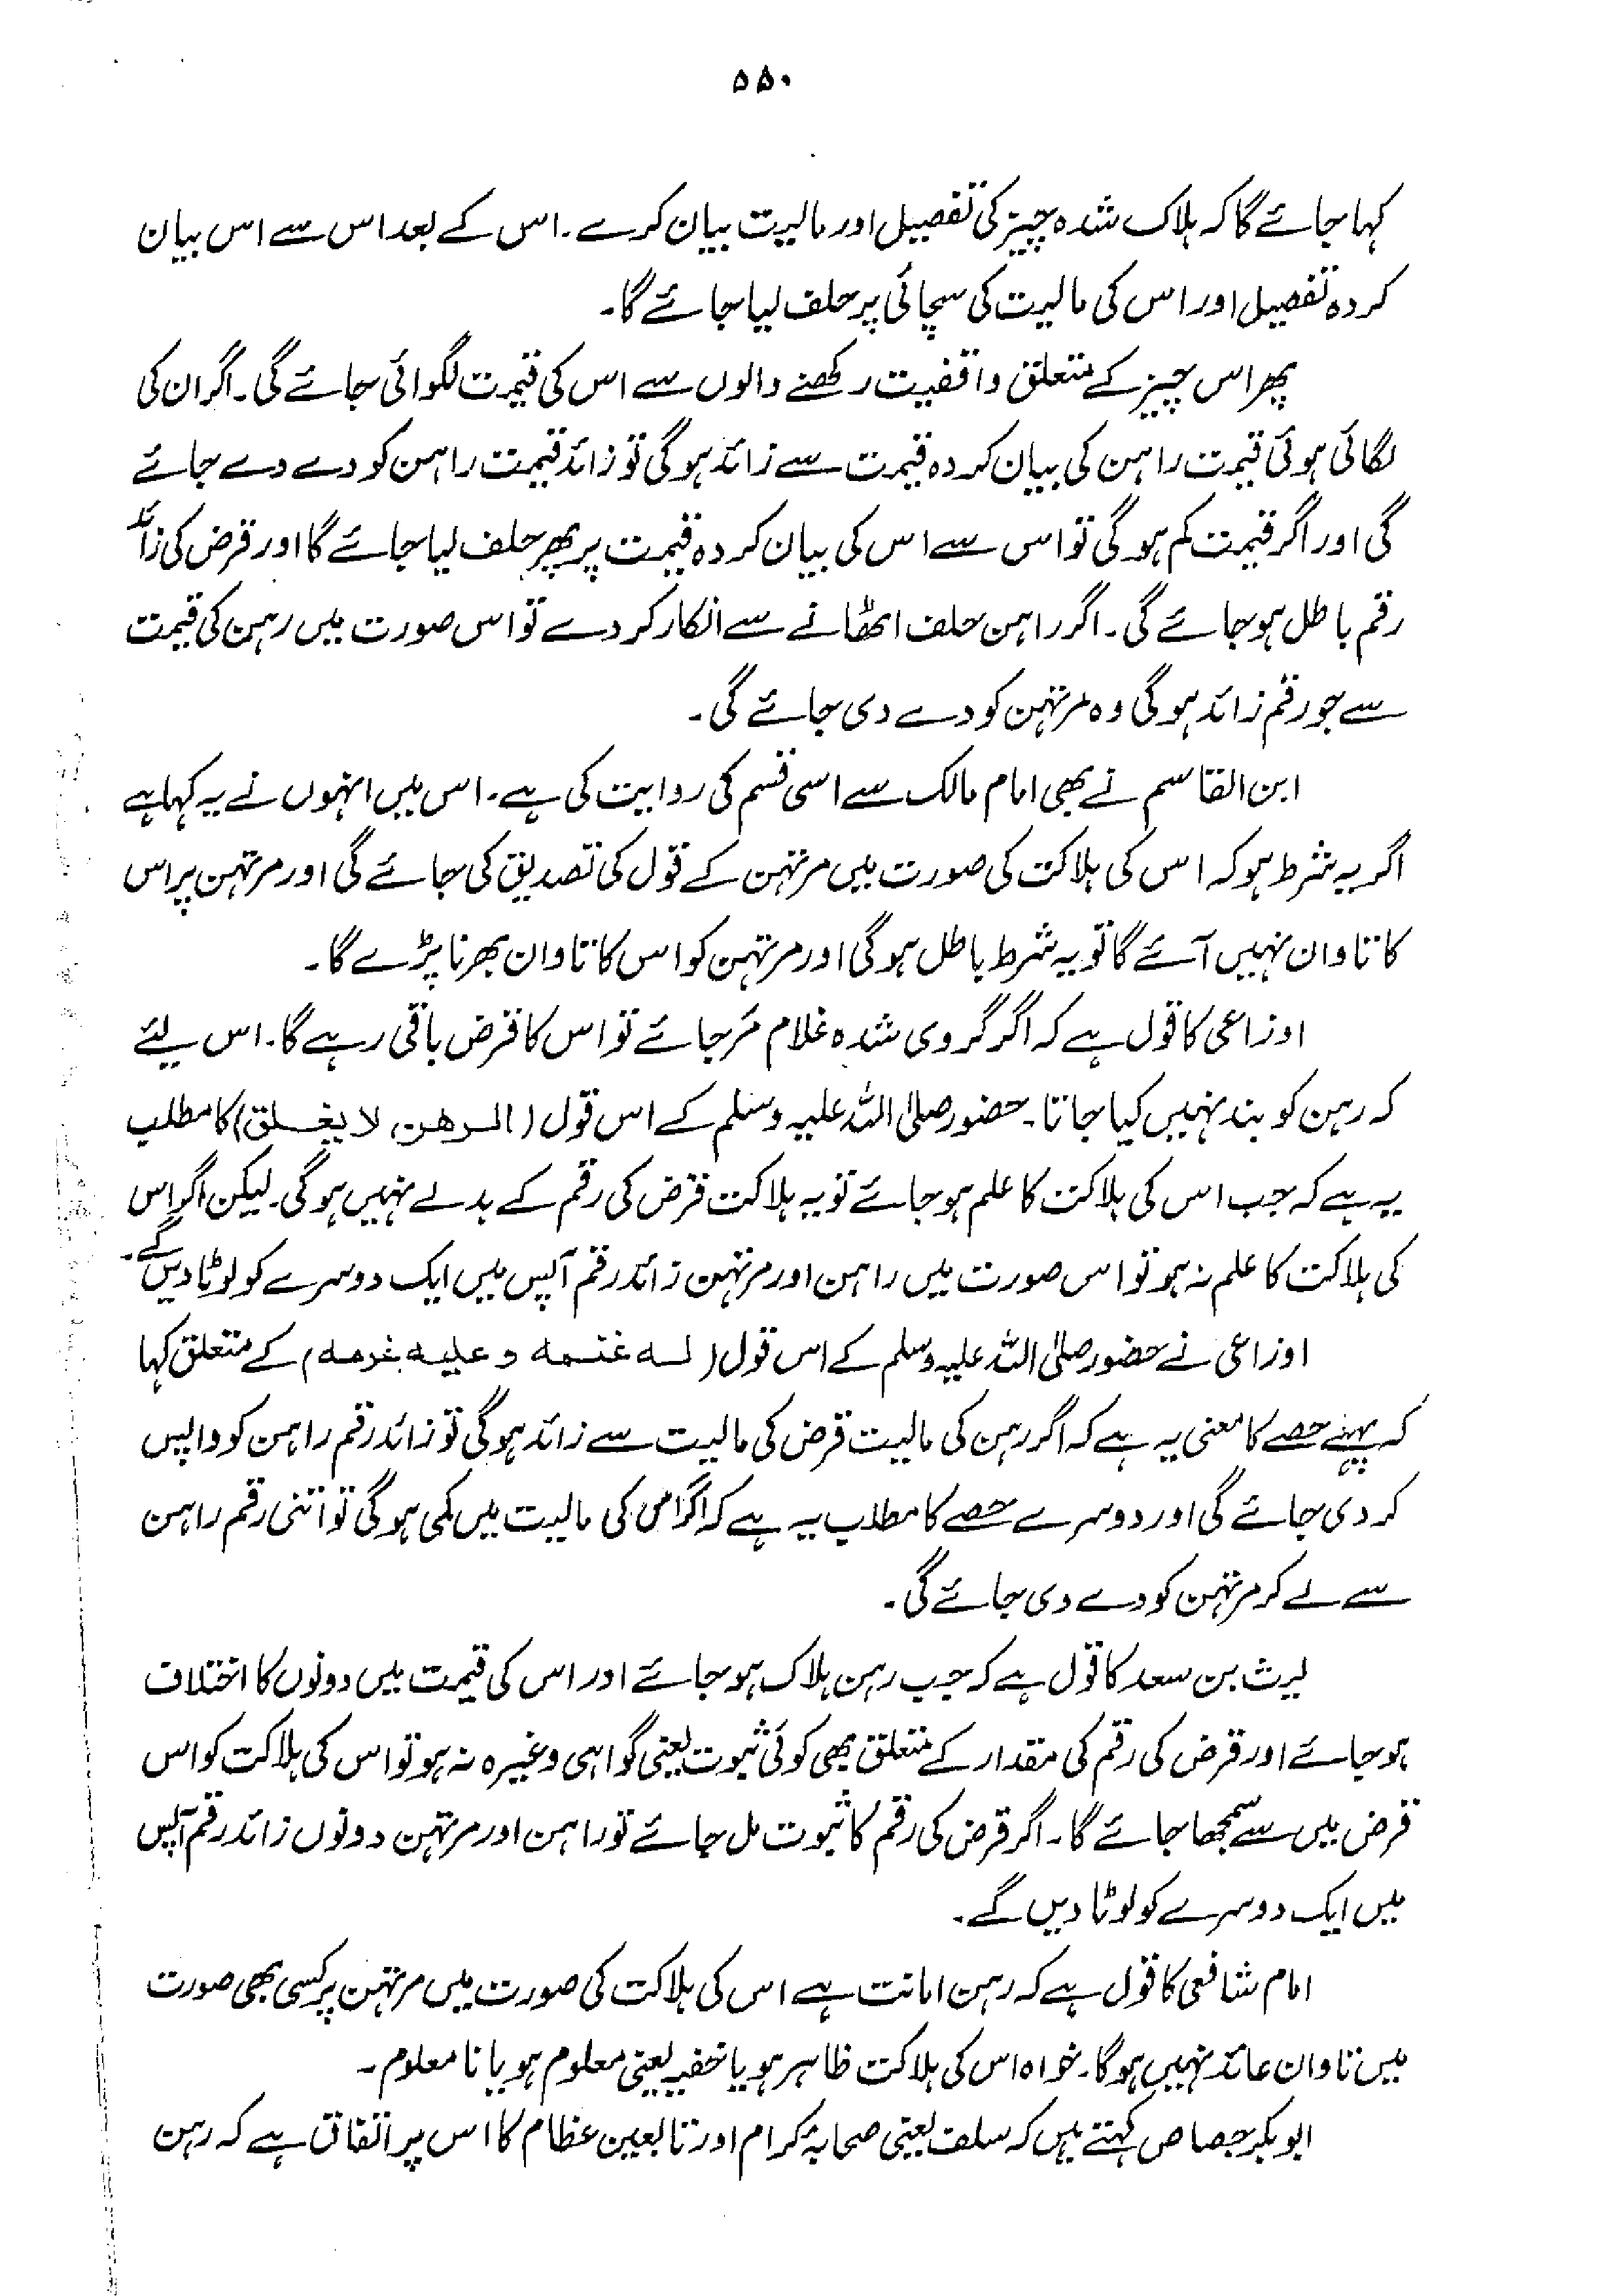 ۵۵۰
کہا جائے گا کہ ہلاک شدہ چیز کی تفصیل اور مالیت بیان کرے۔ اس کے بعد اس سے اس بیان
کردہ تفصیل اور اس کی مالیت کی سچائی پر حلف لیا جائے گا۔
پھر اس چیز کے متعلق واقفیت رکھنے والوں سے اس کی قیمت لگوائی جائے گی۔ اگر ان کی
لگائی ہوئی قیمت راہن کی بیان کردہ قیمت سے زائد ہو گی تو زائد قیمت راہن کو دے دے جائے
گی اور اگر قیمت کم ہو گی تو اس سے اس کی بیان کردہ قیمت پر پھر حلف لیا جائے گا اور قرض کی زائد
رقم باطل ہو جائے گی۔ اگر راہن حلف اٹھانے سے انکار کر دے تو اس صورت میں رہن کی قیمت
سے جو رقم زائد ہو گی وہ مرتہن کو دے دی جائے گی۔
ابن القاسم نے بھی امام مالک سے اسی قسم کی روایت کی ہے۔ اس میں انہوں نے یہ کہا ہے
اگر یہ شرط ہو کہ اس کی ہلاکت کی صورت میں مرتہن کے قول کی تصدیق کی جائے گی اور مرتہن پر اس
کا تاوان نہیں آئے گا تو یہ شرط باطل ہو گی اور مرتہن کو اس کا تاوان بھرنا پڑے گا۔
اوزاعی کا قول ہے کہ اگر گروی شدہ غلام مر جائے تو اس کا قرض باقی رہے گا۔ اس لیئے
کہ رہن کو بند نہیں کیا جاتا۔ حضور صلی اللہ علیہ وسلم کے اس قول (الرهن لا يغلق) کا مطلب
یہ ہے کہ جب اس کی ہلاکت کا علم ہو جائے تو یہ ہلاکت قرض کی رقم کے بدلے نہیں ہو گی۔ لیکن اگر اس
کی ہلاکت کا علم نہ ہو تو اس صورت میں راہن اور مرتہن زائد رقم آپس میں ایک دوسرے کو لوٹا دیں گے۔
اوزاعی نے حضور صلی اللہ علیہ وسلم کے اس قول (له غنمه وعليه غرمه) کے متعلق کہا
کہ پہلے حصے کا معنی یہ ہے کہ اگر رہن کی مالیت قرض کی مالیت سے زائد ہو گی تو زائد رقم راہن کو واپس
کر دی جائے گی اور دوسرے حصے کا مطلب یہ ہے کہ اگر اس کی مالیت میں کمی ہو گی تو اتنی رقم راہن
سے لے کر مرتہن کو دے دی جائے گی۔
لیث بن سعد کا قول ہے کہ جب رہن ہلاک ہو جائے اور اس کی قیمت میں دونوں کا اختلاف
ہو جائے اور قرض کی رقم کی مقدار کے متعلق بھی کوئی ثبوت یعنی گواہی وغیرہ نہ ہو تو اس کی ہلاکت کو اس
قرض میں سے سمجھا جائے گا۔ اگر قرض کی رقم کا ثبوت مل جائے تو راہن اور مرتہن دونوں زائد رقم آپس
میں ایک دوسرے کو لوٹا دیں گے۔
امام شافعی کا قول ہے کہ رہن امانت ہے اس کی ہلاکت کی صورت میں مرتہن پر کسی بھی صورت
میں تاوان عائد نہیں ہو گا۔ خواہ اس کی ہلاکت ظاہر ہو یا خفیہ یعنی معلوم ہو یا نا معلوم۔
ابوبکر جصاص کہتے ہیں کہ سلف یعنی صحابۂ کرام اور تابعین عظام کا اس پر اتفاق ہے کہ رہن